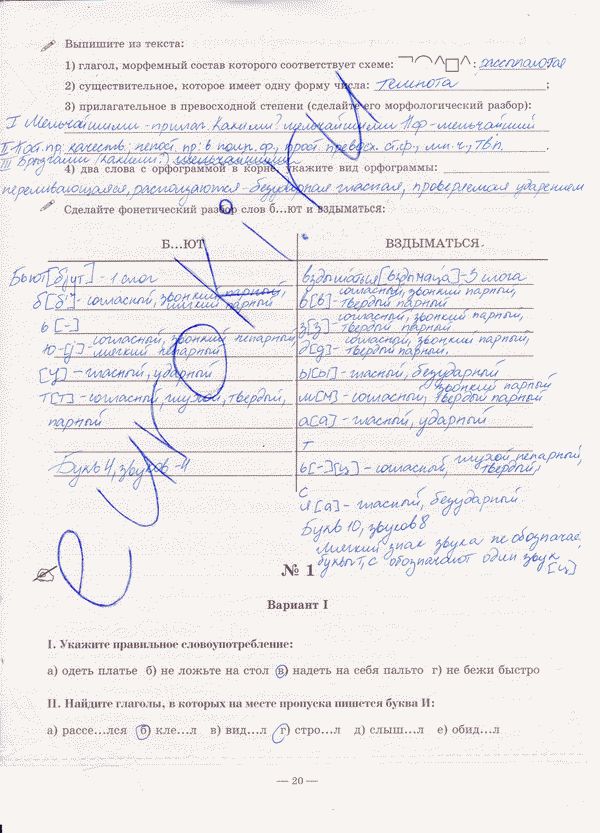 Выпишите из текста:
1) глагол, морфемный состав которого соответствует схеме: :
2) существительное, которое имеет одну форму числа: темнота ;
3) прилагательное в превосходной степени (сделайте его морфологический разбор):
I Мельчайшими - прилаг. Какими? мельчайшими Нф - мельчайший
II Пост. пр: качеств; непост. пр: в полн. ф, прост. превосх. ст. ср., мн. ч, Твп.
III Брызгами (какими?) мельчайшими
4) два слова с орфограммой в корне, укажите вид орфограммы:
переливающаяся, располагаются - безударная гласная, проверяемая ударением
Сделайте фонетический разбор слов б...ют и вздыматься:
Б...ЮТ ВЗДЫМАТЬСЯ.
Бьют - 1 слог
б[б'] - согласный, звонкий парный, мягкий парный
ь [-]
ю-[j] согласный, звонкий непарный мягкий непарный
[у] - гласный, ударный
т[т] - согласный, глухой, твердый, парный
Букв 4, звуков - 4
вздыматься [вздымаца] - 3 слога
в[в] - согласный, звонкий парный, твердый парный
з[з] - согласный, звонкий парный, твердый парный
д[д] - согласный, звонкий парный, твердый парный.
ы[ы] - гласный, безударный
м[м] - согласный, звонкий парный твердый парный
а[а] - гласный, ударный
т
ь[-][ц] - согласный, глухой непарный, твердый,
с
я[а] - гласный, безударный.
Букв 10, звуков 8
Мягкий знак звука не обозначае,
буквы т, с обозначают один звук [ц]
еуроки.ру
№ 1
Вариант I
I. Укажите правильное словоупотребление:
а) одеть платье б) не ложьте на стол в) надеть на себя пальто г) не бежи быстро
II. Найдите глаголы, в которых на месте пропуска пишется буква И:
а) рассе...лся б) кле...л в) вид...л г) стро...л д) слыш...л е) обид...л
— 20 —